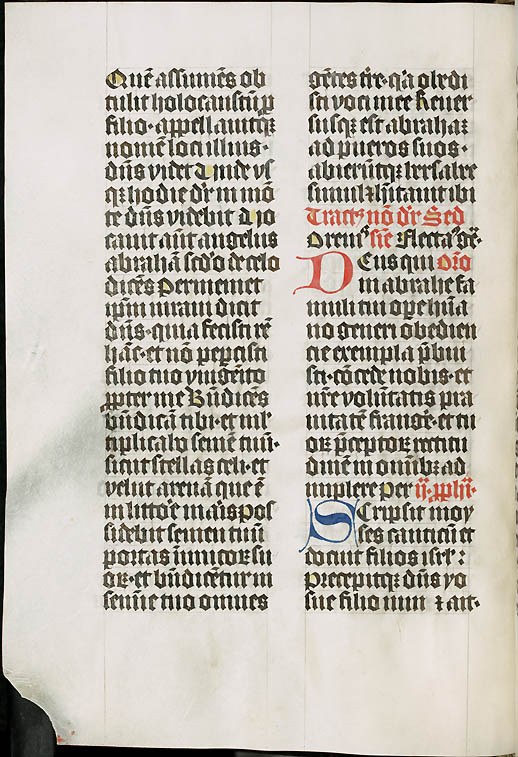 Quē assumēs ob
tulit holocaustū p
filio. appellauitqꝫ
nomē loci illius.
dn̄s videt Vnde vs
qꝫ hodie dr̄ in mō
te dn̄s videbit Uo
cauit aūt angelus
abrahā scd̄o de celo
dicēs Per memet
ip̄m iuraui dicit
dn̄s. quia fecisti rē
hāc. et nō pepercisti
filio tuo vnigēito
ꝓpter me Bn̄dicēs
bn̄dicā tibi. et ml̓
tiplicabo semē tuū.
sicut stellas celi. et
velut arenā que ē
in littoꝛe maꝛis pos
sidebit semen tuū
portas inimicoꝝ su
oꝝ. et bn̄dicentur in
semīe tuo omnes
gētes tr̄e. q̓a obedi
sti voci mee Reuer
susqꝫ est abraham
ad pueros suos.
abierūtqꝫ bersabee
simul ⁊ hītauit ibi
Tractꝰ nō dr̄ Sed
Oremꝰ sīe Flectaꝰ gē.
DEus qui or̄o
in abrahe fa
muli tui ope hūa
no generi obedien
cie exempla p̄bui
sti. cōcede nobis. et
nr̄e volūtatis pra
uitatē frangeꝛ. et tu
oꝝ p̄ceptoꝝ rectitu
dinē in omībꝫ ad
implere Per ij. ꝓph̄ı.
SCripsit moy
ses canticū et
docuit filios isrl̓:
Precepitqꝫ dn̄s yo
sue filio nun ⁊ ait.